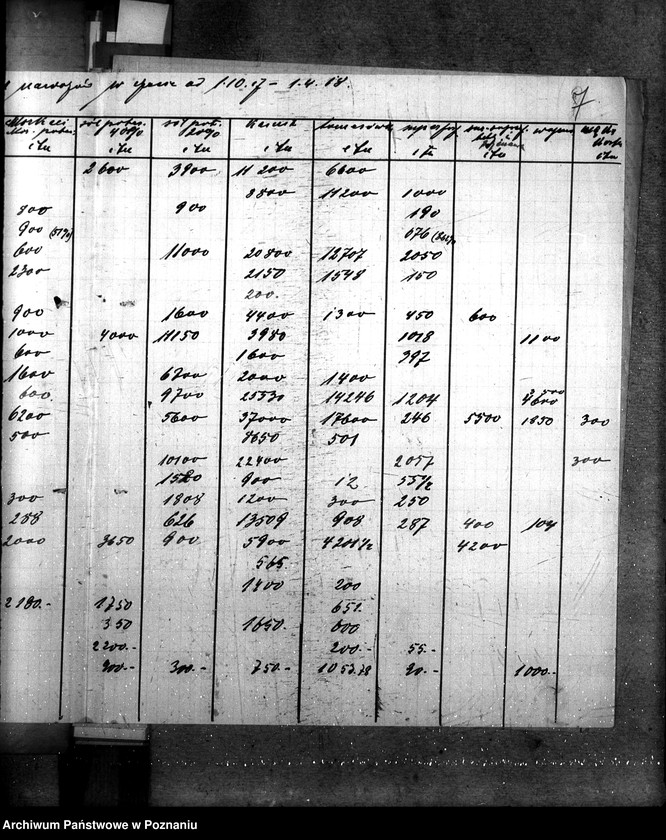 nawozów w czasie od 1.10.17 - 1.4.18.
7
40% 20% Kainit tomasówka
2600 3900 11200 6600
8800 11200 1000
800 900 190
900 676
600 11000 20800 12707 2050
2300 2150 1548 150
200.
900 1600 4400 1300 450 600
1000 4000 14150 3980 1028 1100
600 1600 397
1600 6700 2000 1400
600 9700 25530 14246 1204
6200 5600 37000 17600 246 5500 1850 300
500 8650 501
10100 22400 2057 300
1520 900 12
300 1808 1200 300 250
288 626 13509 908 287 400 104
2000 3650 900 5900 4200
565.
1400 200
2180.- 1750 651.
350 1650.- 600
2200.- 200.- 55.-
900.- 300.- 750.- 1057.78 20.- 1000.-
Archiwum Państwowe w Poznaniu